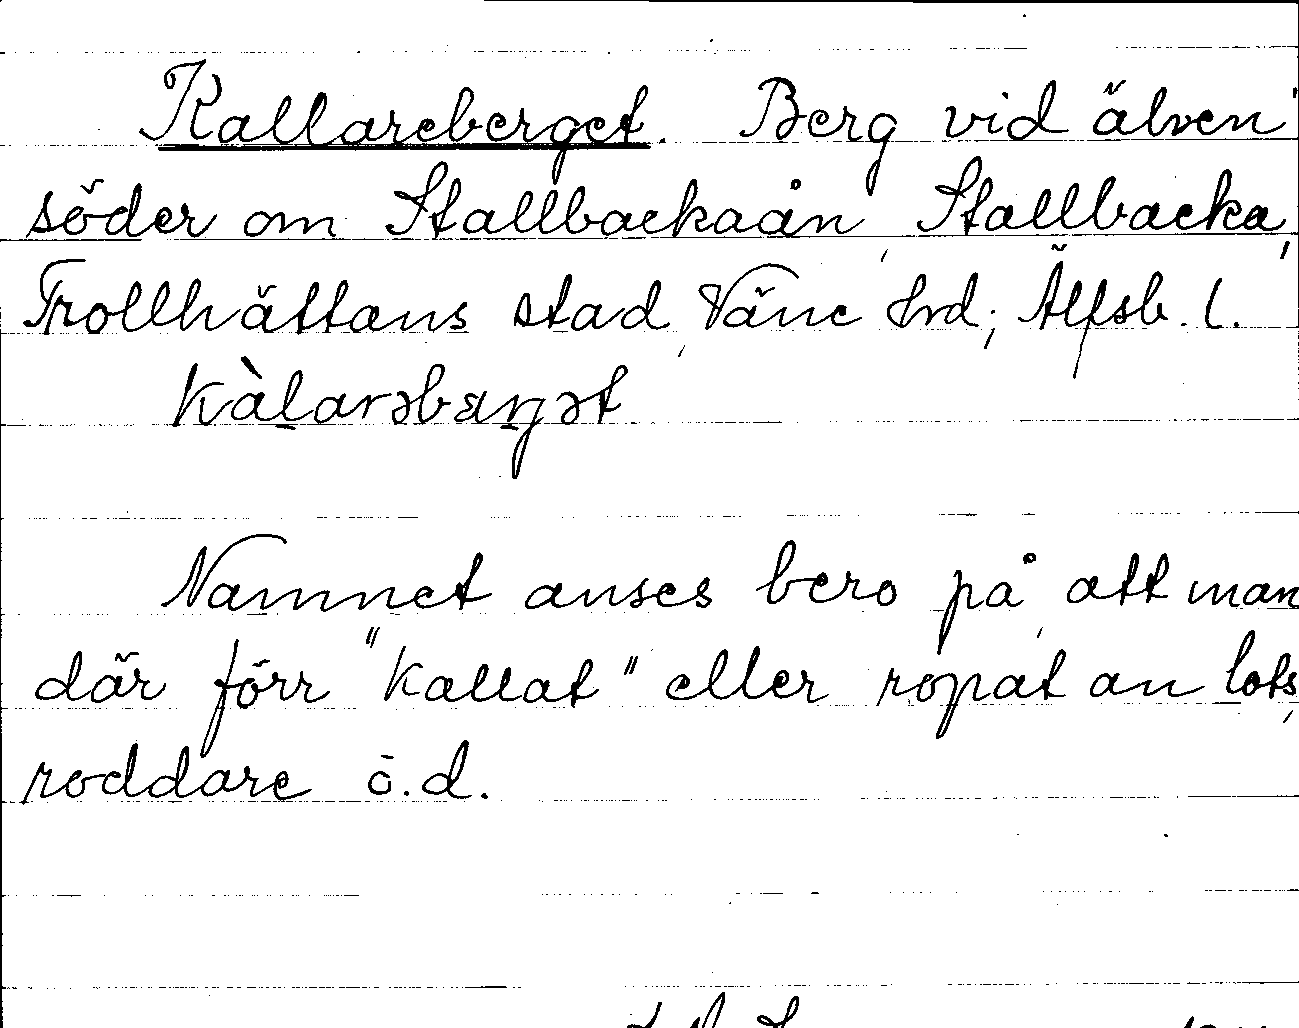 Kallareberget. Berg vid älven
söder om Stallbackaån, Stallbacka,
Trollhättans stad, Väne hrd, Älfsb. l.
kàlarəbærjət
Namnet anses bero på, att man
där förr "kallat" eller ropat an lots,
roddare o.d.